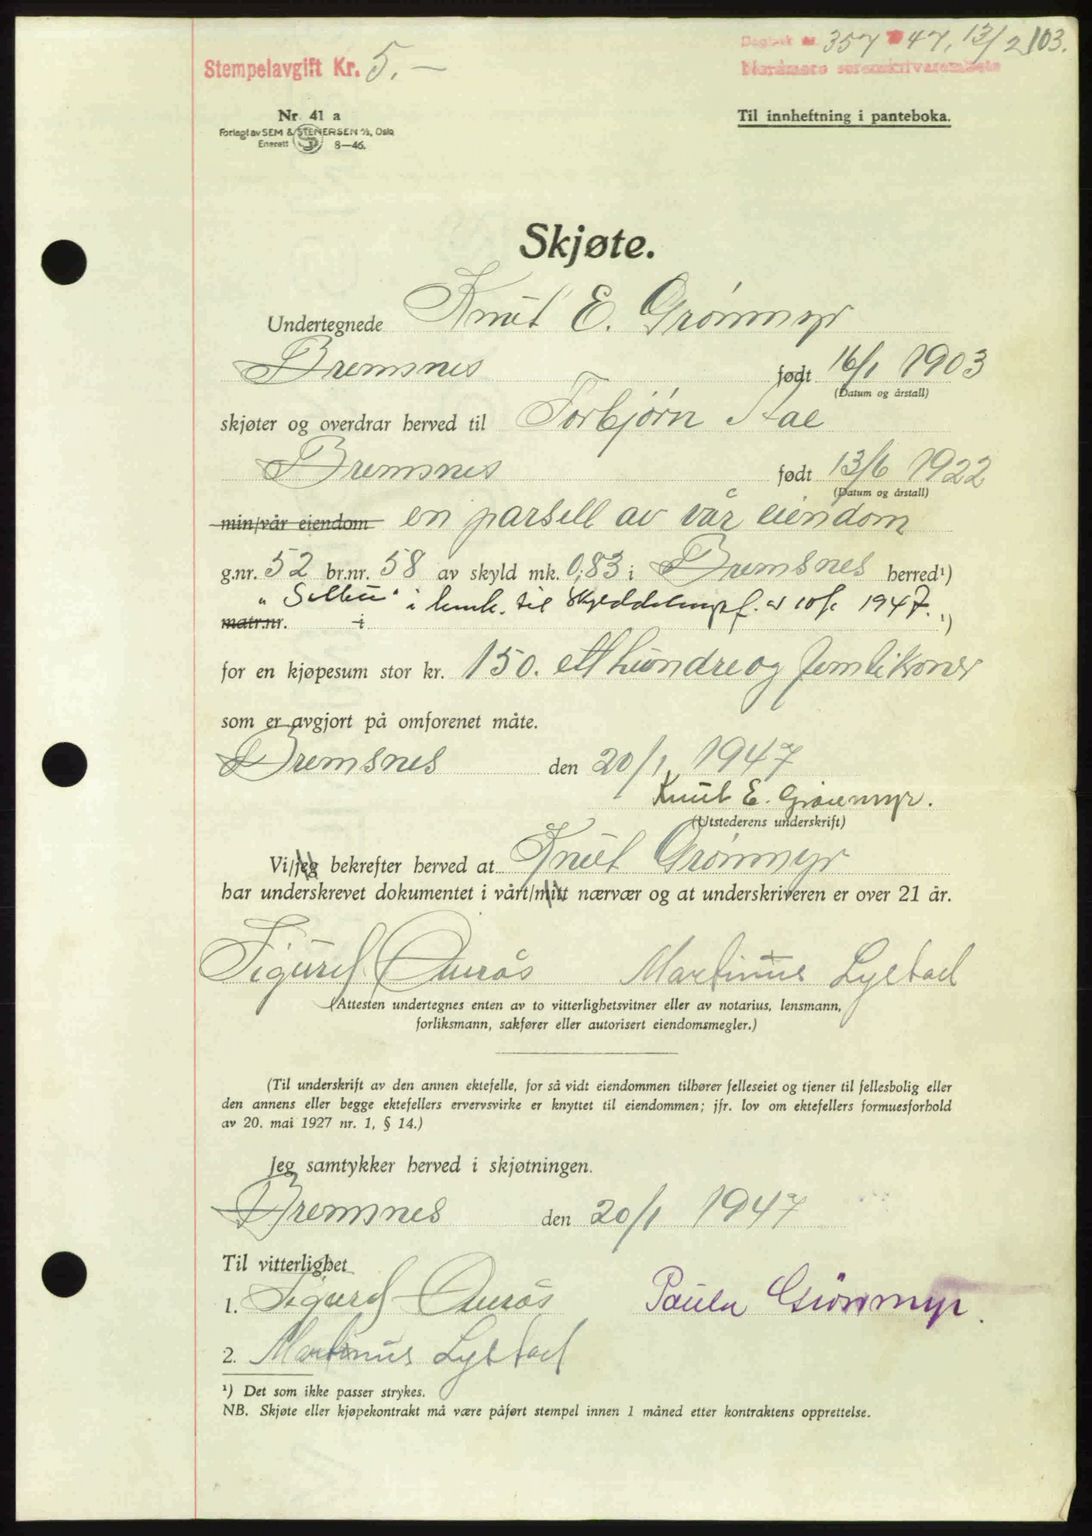 Stempelavgift Kr. 5.—
Dagbok nr. 357 47, 13/2 103.
Nordmøre sorenskriverembete
Nr 41 a
Forlagt av SEM & STENERSEN A/S, Oslo
Enerett 8—46.
Til innheftning i panteboka.
Skjøte.
Undertegnede Knut E. Grønmyr
Bremsnes født 16/1 1903
(Datum og årstall)
skjøter og overdrar herved til Torbjørn
Bremsnes født 13/6 1922
(Datum og årstall)
min/vår eiendom en parsell av vår eiendom
g.nr. 52 br.nr. 58 av skyld mk. 0,83 i Bremsnes herred¹)
matr.nr. i i henh. til 1947. ¹)
for en kjøpesum stor kr. 150. etthundreog femtikroner
som er avgjort på omforenet måte.
Bremsnes den 20/1 1947
Knut E. Grønmyr.
(Utstederens underskrift)
Vi/jeg bekrefter herved at Knut Grønmyr
har underskrevet dokumentet i vårt/mitt nærvær og at underskriveren er over 21 år.
Sigurd Martinus Lystad
(Attesten undertegnes enten av to vitterlighetsvitner eller av notarius, lensmann,
forliksmann, sakfører eller autorisert eiendomsmegler.)
(Til underskrift av den annen ektefelle, for så vidt eiendommen tilhører felleseiet og tjener til fellesbolig eller
den annens eller begge ektefellers ervervsvirke er knyttet til eiendommen; jfr. lov om ektefellers formuesforhold
av 20. mai 1927 nr. 1, § 14.)
Jeg samtykker herved i skjøtningen.
Bremsnes den 20/1 1947
Til vitterlighet
1. Sigurd Paula Grønmyr.
2. Martinus Lystad
¹) Det som ikke passer strykes.
NB. Skjøte eller kjøpekontrakt må være påført stempel innen 1 måned etter kontraktens opprettelse.